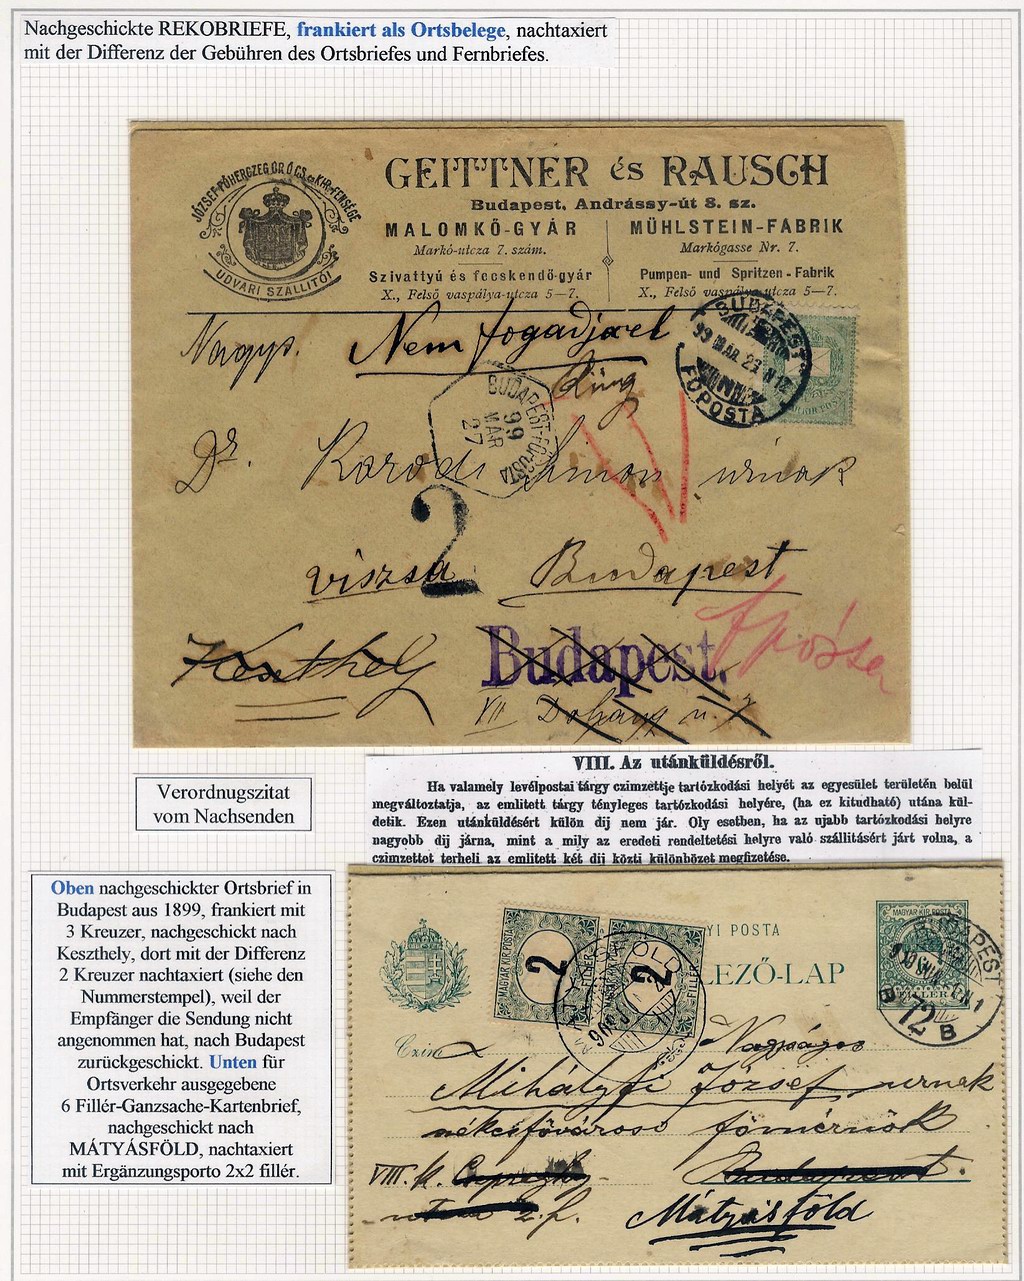 Nachgeschickte REKOBRIEFE, frankiert als Ortsbelege, nachtaxiert
mit der Differenz der Gebühren des Ortsbriefes und Fernbriefes.
JÓZSEF FŐHERCZEG ŐR Ő CS. és KIR. FENSÉGE
UDVARI SZÁLLITÓI
GEITTNER és RAUSCH
Budapest, Andrássy-út 8. sz.
MALOMKŐ-GYÁR
Markó-utcza 7. szám.
Szivattyú és fecskendő-gyár
X., Felső vaspálya-utcza 5—7.
MÜHLSTEIN-FABRIK
Markógasse Nr. 7.
Pumpen- und Spritzen-Fabrik
X., Felső vaspálya-utcza 5—7.
BUDAPEST
99 MAR 23
FŐPOSTA
Nagys. Nem fogadja el
BUDAPEST-FŐPOSTA
99
MÁR
27
Dr. Simon urnak
2
viszsa Budapest
Keszthely Budapest.
VII Dohány u. 7
VIII. Az utánküldésről.
Ha valamely levélpostai tárgy czimzettje tartózkodási helyét az egyesület területén belül
megváltoztatja, az emlitett tárgy tényleges tartózkodási helyére, (ha ez kitudható) utána kül-
detik. Ezen utánküldésért külön dij nem jár. Oly esetben, ha az ujabb tartózkodási helyre
nagyobb dij járna, mint a mily az eredeti rendeltetési helyre való szállitásért járt volna, a
czimzettet terheli az emlitett két dij közti különbözet megfizetése.
Verordnugszitat
vom Nachsenden
Oben nachgeschickter Ortsbrief in
Budapest aus 1899, frankiert mit
3 Kreuzer, nachgeschickt nach
Keszthely, dort mit der Differenz
2 Kreuzer nachtaxiert (siehe den
Nummerstempel), weil der
Empfänger die Sendung nicht
angenommen hat, nach Budapest
zurückgeschickt. Unten für
Ortsverkehr ausgegebene
6 Fillér-Ganzsache-Kartenbrief,
nachgeschickt nach
MÁTYÁSFÖLD, nachtaxiert
mit Ergänzungsporto 2x2 fillér.
MAGYAR KIR. POSTA
2
FILLÉR
2
FILLÉR
YI POSTA
LEZŐ-LAP
MAGYAR KIR. POSTA
FILLÉR
BUDAPEST
72
B B
Czim
Nagyságos
Mihályfi József urnak
székesfővárosi főmérnök
VIII. k. Budapest.
Mátyásföld